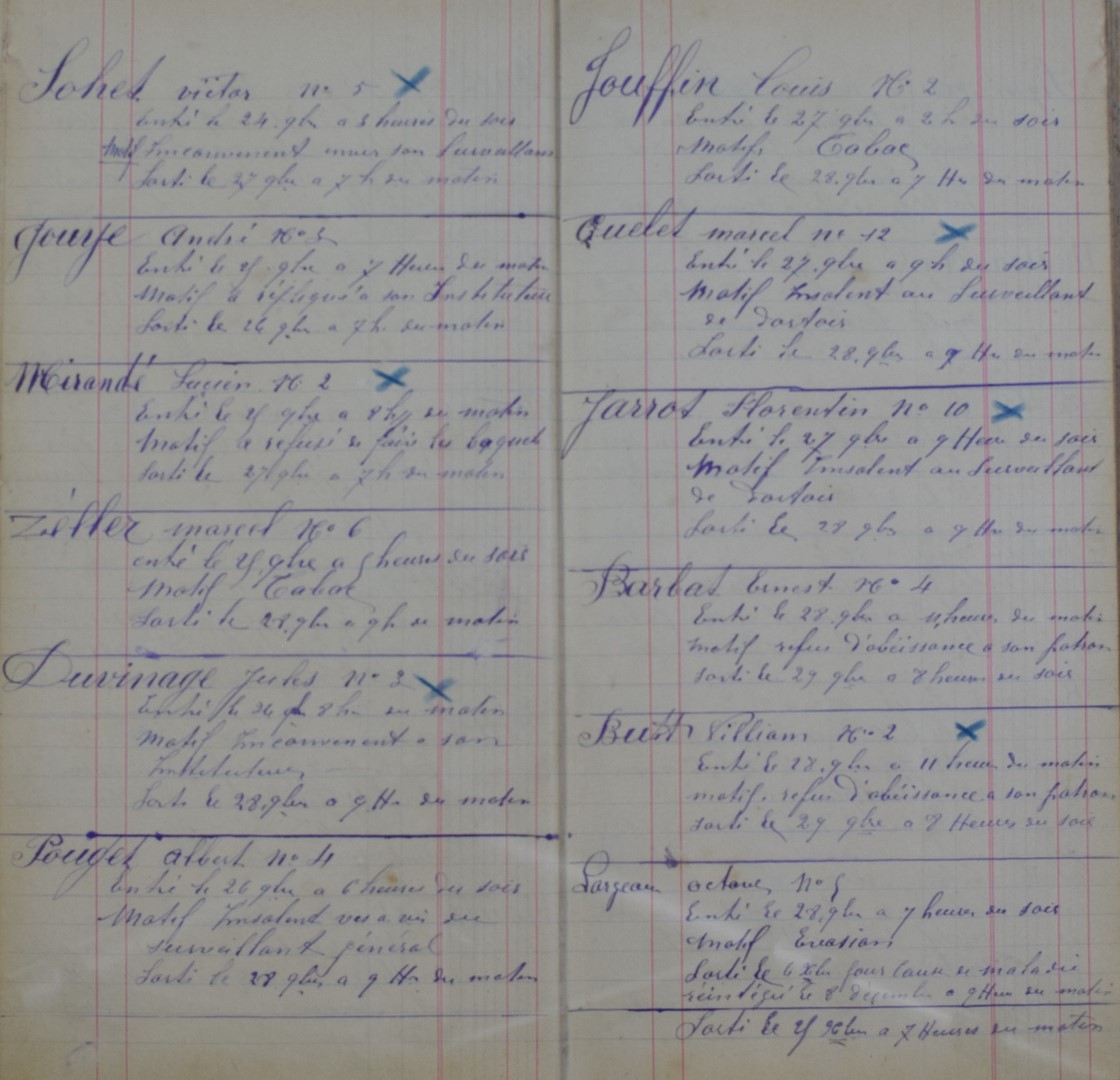 Sohet victor n° 5
Entré le 24 gbre a 5 heures du soir
Motif Inconvenent envers son Surveillant
Sorti le 27 gbre a 7 h du matin
Gouye André N° 5
Entré le 25 gbre a 7 Heures du matin
Motif a répliqué a son Instituteur
Sorti le 26 gbre a 7 h. du matin
Mirandé Lucien N° 2
Entré le 25 gbre a 8 h/2 du matin
Motif a refusé de faire les baquets
Sorti le 27 gbre a 7 h du matin
Zeller marcel N° 6
entré le 25 gbre a 5 heures du soir
Motif Tabac
Sorti le 28 gbre a 9 h de matin
Duvinage Jules n° 2
Entré le 26 gb 8 hr du matin
Motif Inconvenent a son
Instituteur
Sorti le 28 gbre a 9 Hr du matin
Pouget albert n° 4
Entré le 26 gbre a 6 heures du soir
Motif Insolent vis a vis du
surveillant général
Sorti le 28 gbre a 9 Hr du matin
Jouffin Louis N° 2
Entré le 27 gbre a 2 h du soir
Motif Tabac
Sorti le 28 gbre a 7 Hr du matin
Quelet marcel n° 12
Entré le 27 gbre a 9 h du soir
Motif Insolent au Surveillant
de Dortoir
Sorti le 28 gbre a 9 Hr du matin
Jarrot Florentin N° 10
Entré le 27 gbre a 9 Heure du soir
Motif Insolent au Surveillant
de Dortoir
Sorti le 28 gbre a 9 Hr du matin
Barbat Ernest N° 4
Entré le 28 gbre a 11 heures du matin
motif refus d'obéissance a son patron
sorti le 29 gbre a 8 heures du soir
Butt William N° 2
Entré le 28 gbre a 11 heures du matin
motif. refus d'obéissance a son patron
sorti le 29 gbre a 8 Heures du soir
Largeau octave N° 5
Entré le 28 gbre a 7 heures du soir
Motif Evasion
Sorti le 6 Xbre pour cause de maladie
réintégré le 8 décembre a 9 Heures du matin
Sorti le 25 Xbre a 7 Heures du matin